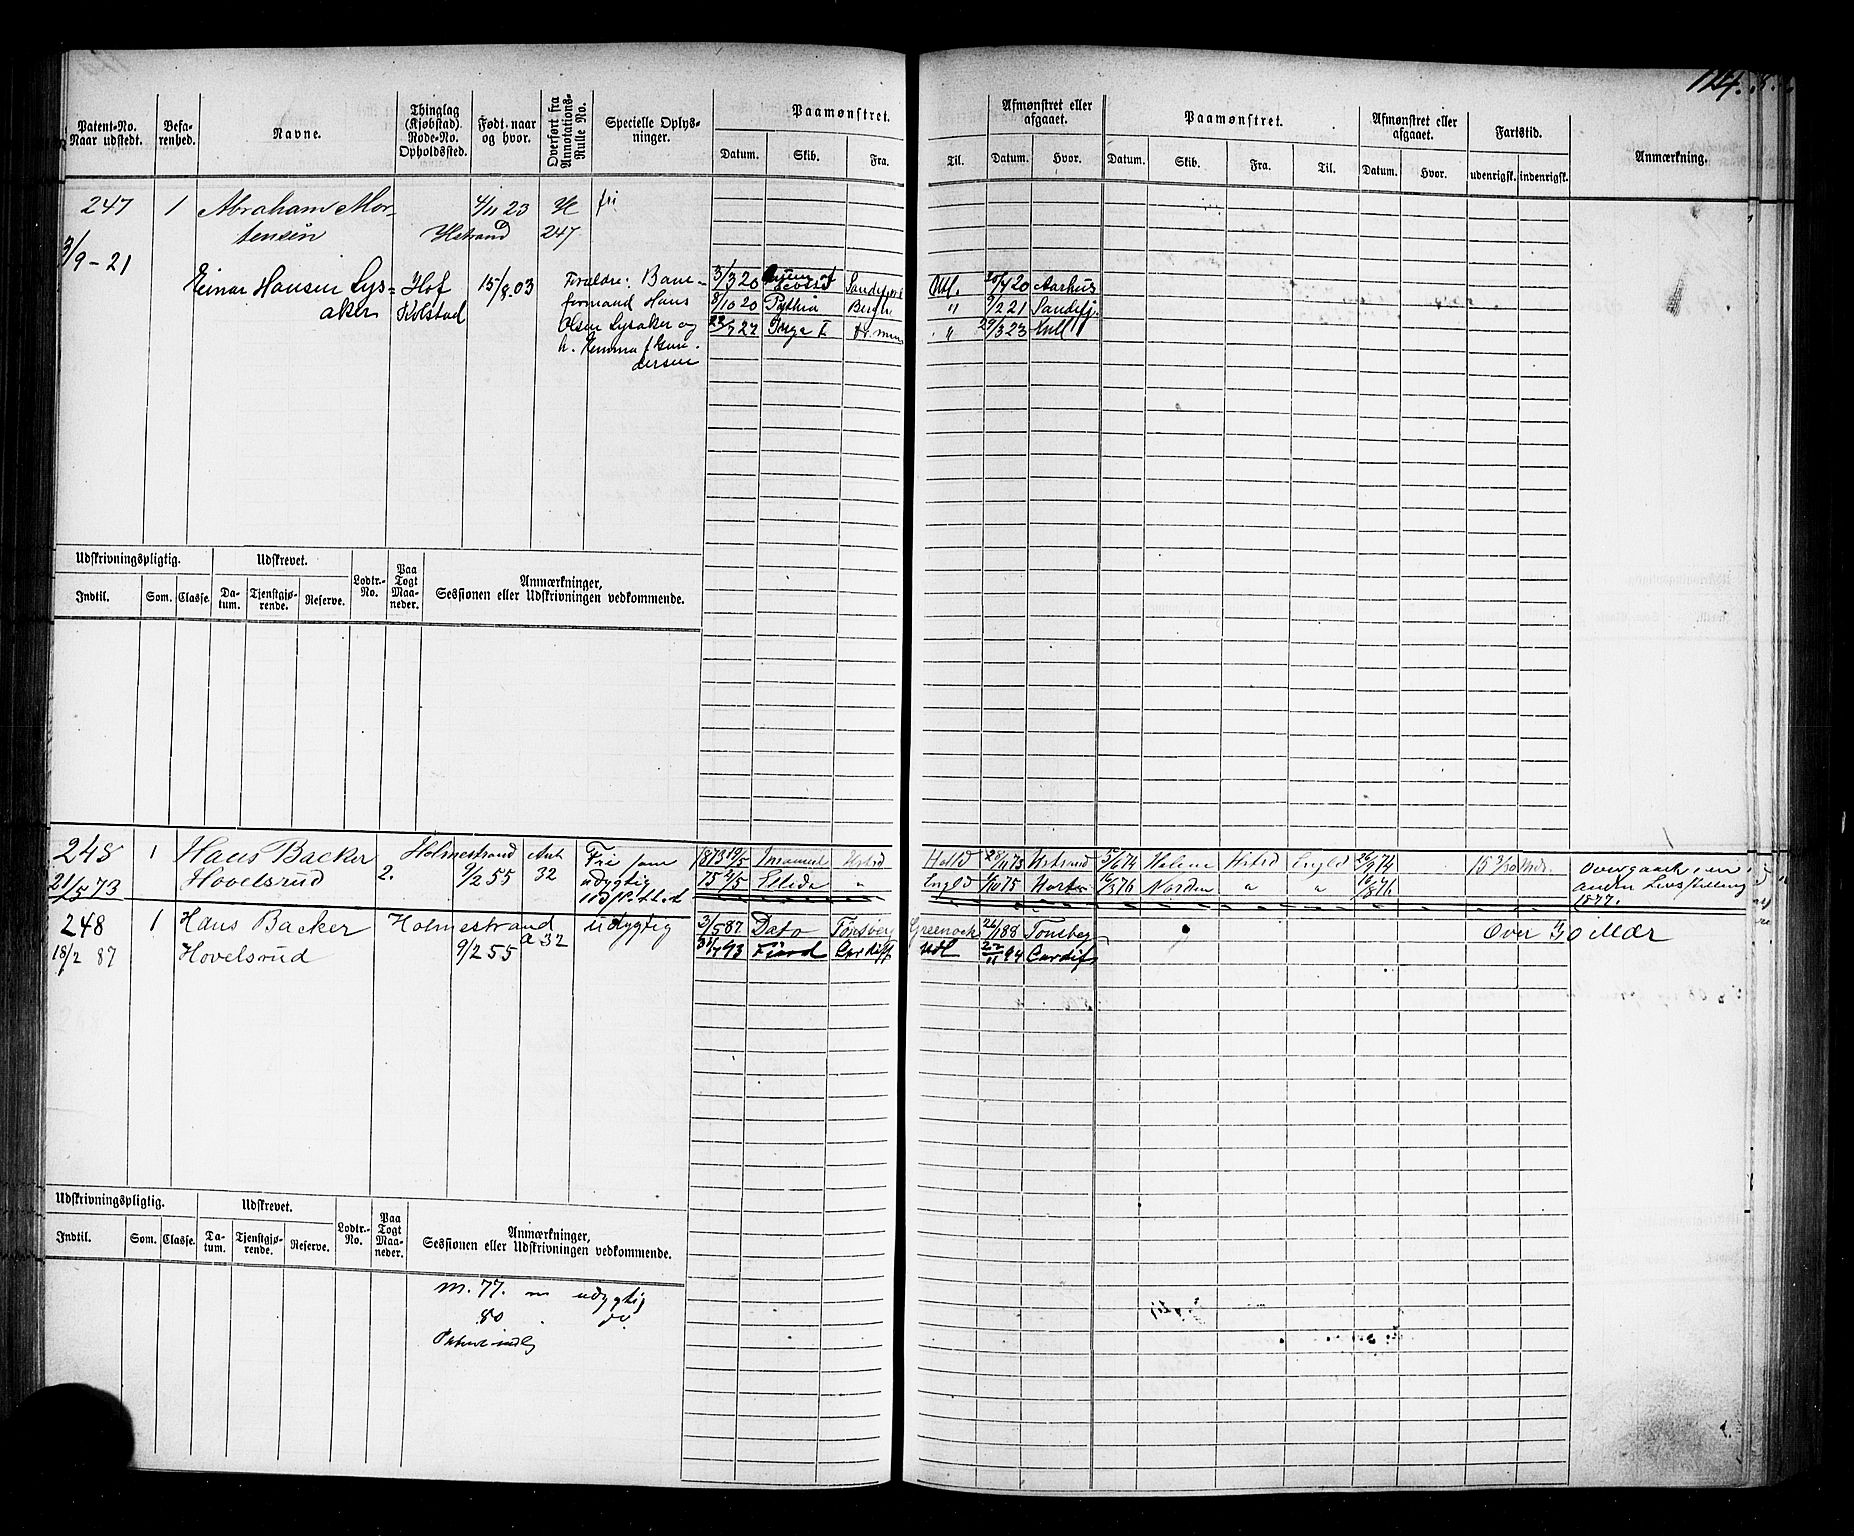 124.
Patent-No. Naar udstedt.
Befarenhed.
Navne.
Thinglag (Kjøbstad). Rode-No. Opholdssted.
Født, naar og hvor.
Overført fra Annotations-Rulle No.
Specielle Oplysninger.
Paamønstret.
Datum. Skib. Fra. Til.
Afmønstret eller afgaaet.
Datum. Hvor.
Paamønstret.
Datum. Skib. Fra. Til.
Afmønstret eller afgaaet.
Datum. Hvor.
Fartstid.
udenrigsk. indenrigsk.
Anmærkning.
247 1 Abraham Mor- 4/11 23 fri
tensen Hstrand 247
3/9-21
Einar Hansen Lys- Hof 15/8.03 Forældre: Bane- 3/3 20 Sandefjord Utl. 20 Aarhus
aker Kolstad formand Hans 8/10 20 Pythia Bergh. " 9/2 21 Sandefj.
Olsen Lysaker og 22 Inga I " 29/3 23 Hull
h. Emma f Gun-
dersen
Udskrivningspligtig. Udskrevet. Lodtr.-No. Paa Togt Maaneder. Anmærkninger, Sessionen eller Udskrivningen vedkommende.
Indtil. Som. Classe. Datum. Tjenstgjørende. Reserve.
248 1 Hans Backer Holmestrand Ant Fri som 1873 19/5 Hstrd Holld 73 Hstrand 15/6 74 Helene Hstrd Engld 26/9 74 Overgaaet i en
21/5 73 Hovelsrud 2. 9/2 55 32 udygtig 75 Ellida " Engld 75 Horten 16/3 76 Norden " " 76 anden Livsstilling
1877.
248 1 Hans Backer Holmestrand udygtig 3/5 87 Dato Tønsberg Greenock 26/1 88 Tønsberg Over 60 Mdr
18/2 87 Hovelsrud 9/2 55 a 32 31/7 93 Fiord Cardiff Udl 22/11 94 Cardiff
Udskrivningspligtig. Udskrevet. Lodtr.-No. Paa Togt Maaneder. Anmærkninger, Sessionen eller Udskrivningen vedkommende.
Indtil. Som. Classe. Datum. Tjenstgjørende. Reserve.
M. 77. udygtig
80 do
Patent indlg